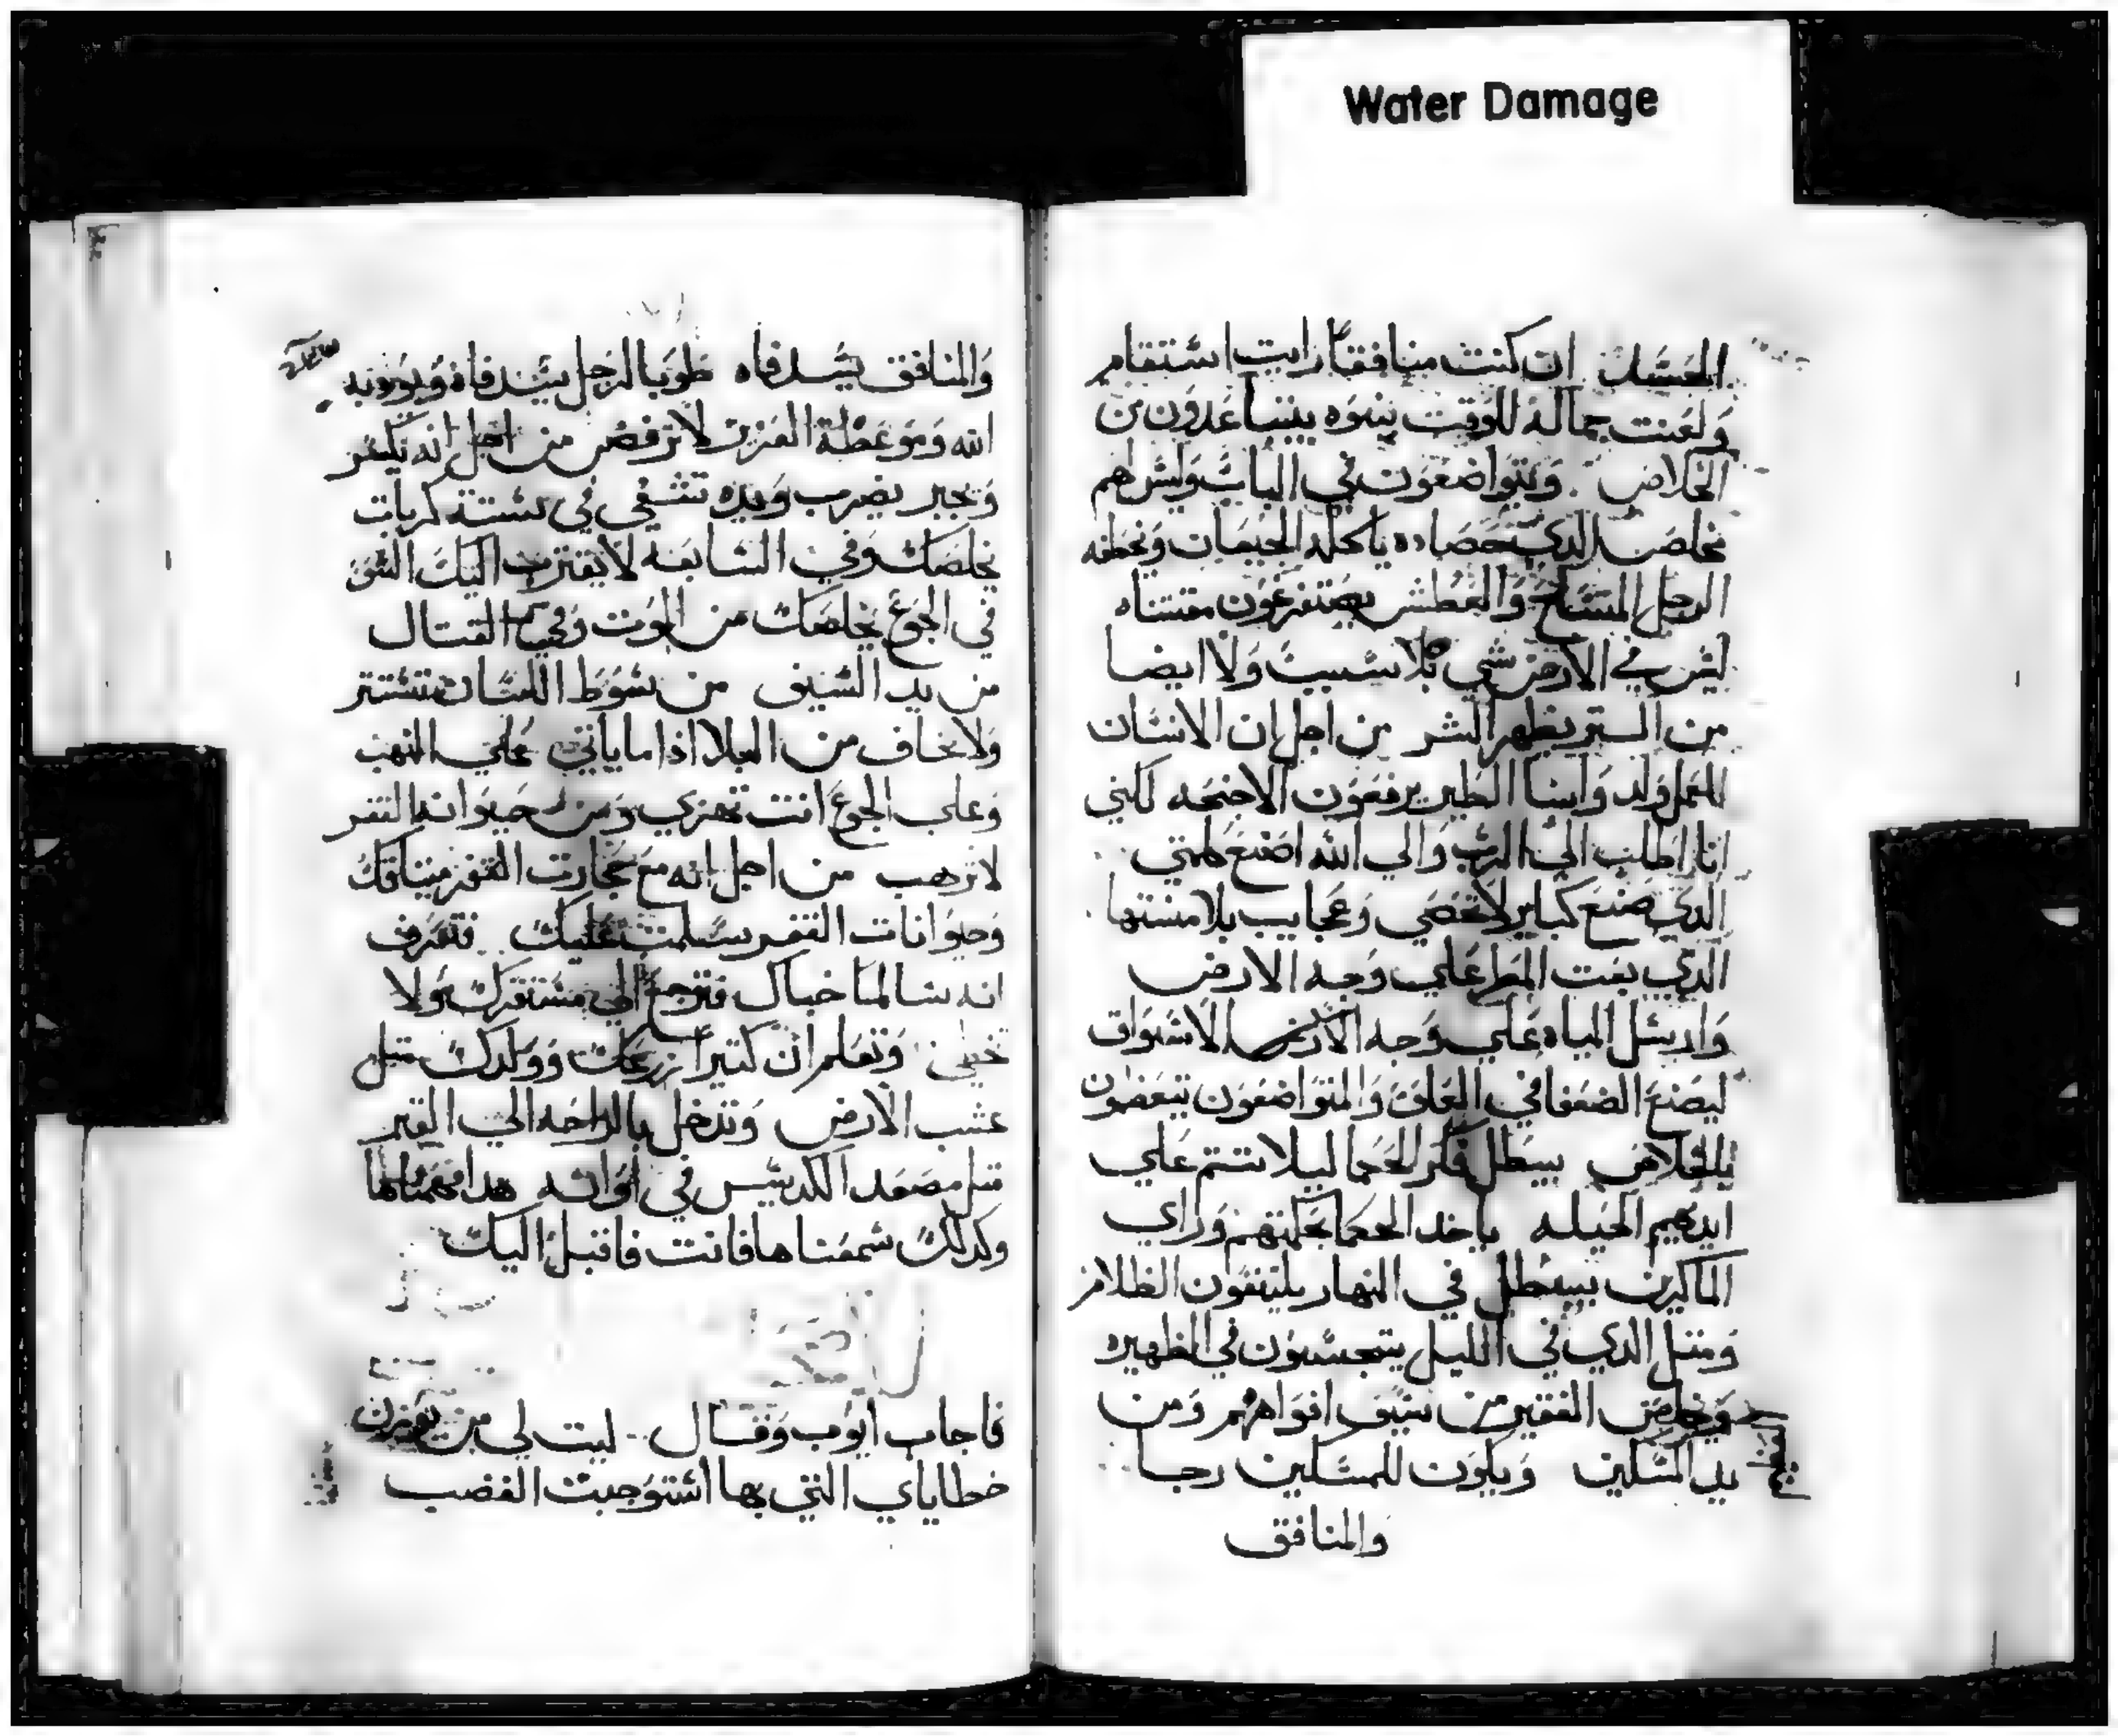 Water Damage
الحسد ان كنت منافقا رايت استقام
ولعنت جماله للوقت بنوه يتباعدون من
الخلاص . ويتواضعون في الباب وليس لهم
مخلص الدي حصاده ياكله الجيعان وتخطفه
الرجل المتسلح والعطش يصتفرغون مقتناه
ليس في الارض شي بلا سبب ولا ايضا
من الستر يظهر الشر من اجل ان الانسان
للعمل ولد وابنا الطير يرفعون الاجنحه لكني
انا اطلب الي الرب والي الله اضع كلمتي
الدي صنع كباير لا تحصي وعجايب بلا منتها
الدي بعت المطر علي وجه الارض
وارسل المياه علي وجه الارض الاسواق
ليصنع الضعفا في العلو والمتواضعون يتعضون
بالخلاص يبطل فكر الحكما ليلا تتم علي
ايديهم الحيله ياخد الحكما بحكمتهم وراي
الماكرين يبطل في النهار يلتقون الظلام
ومتل الدي في الليل يتجسسون في الظهيره
وخلص الفقير من سيف افواههم ومن
يد المسكين ويكون للمسكين رجا
والمنافق
والمنافق يسد فاه طوبا لرجل يسد فاه ويودبه
الله وموعظة العزيز لا ترفض من اجل انه يكسر
وتجبر يضرب ويده تشفي في ستة كربات
يخلصك وفي السابعه لا يقترب اليك الشر
في الجوع يخلصك من الموت وفي القتال
من يد السيف من سوط اللسان تستتر
ولا تخاف من البلا اذا ما ياتي علي المنهب
وعلي الجوع انت تهزي ومن حيوانه القفر
لا ترهب من اجل انه مع حجارت القفر ميتاقك
وحيوانات القفر سلمت عليك فتعرف
انه سالما خباك فترجع الي مستقرك ولا
تخطي وتعلم ان كتيرا زرعك وولدك متل
عشب الارض وتدخل بالراحه الي القبر
متل مصعد الكديس في اوانه هدا فهمناها
وكدلك سمعناها فانت فاقبل اليك
فاجاب ايوب وقال ليت لي من يوزن
خطاياي التي بها استوجبت الغضب